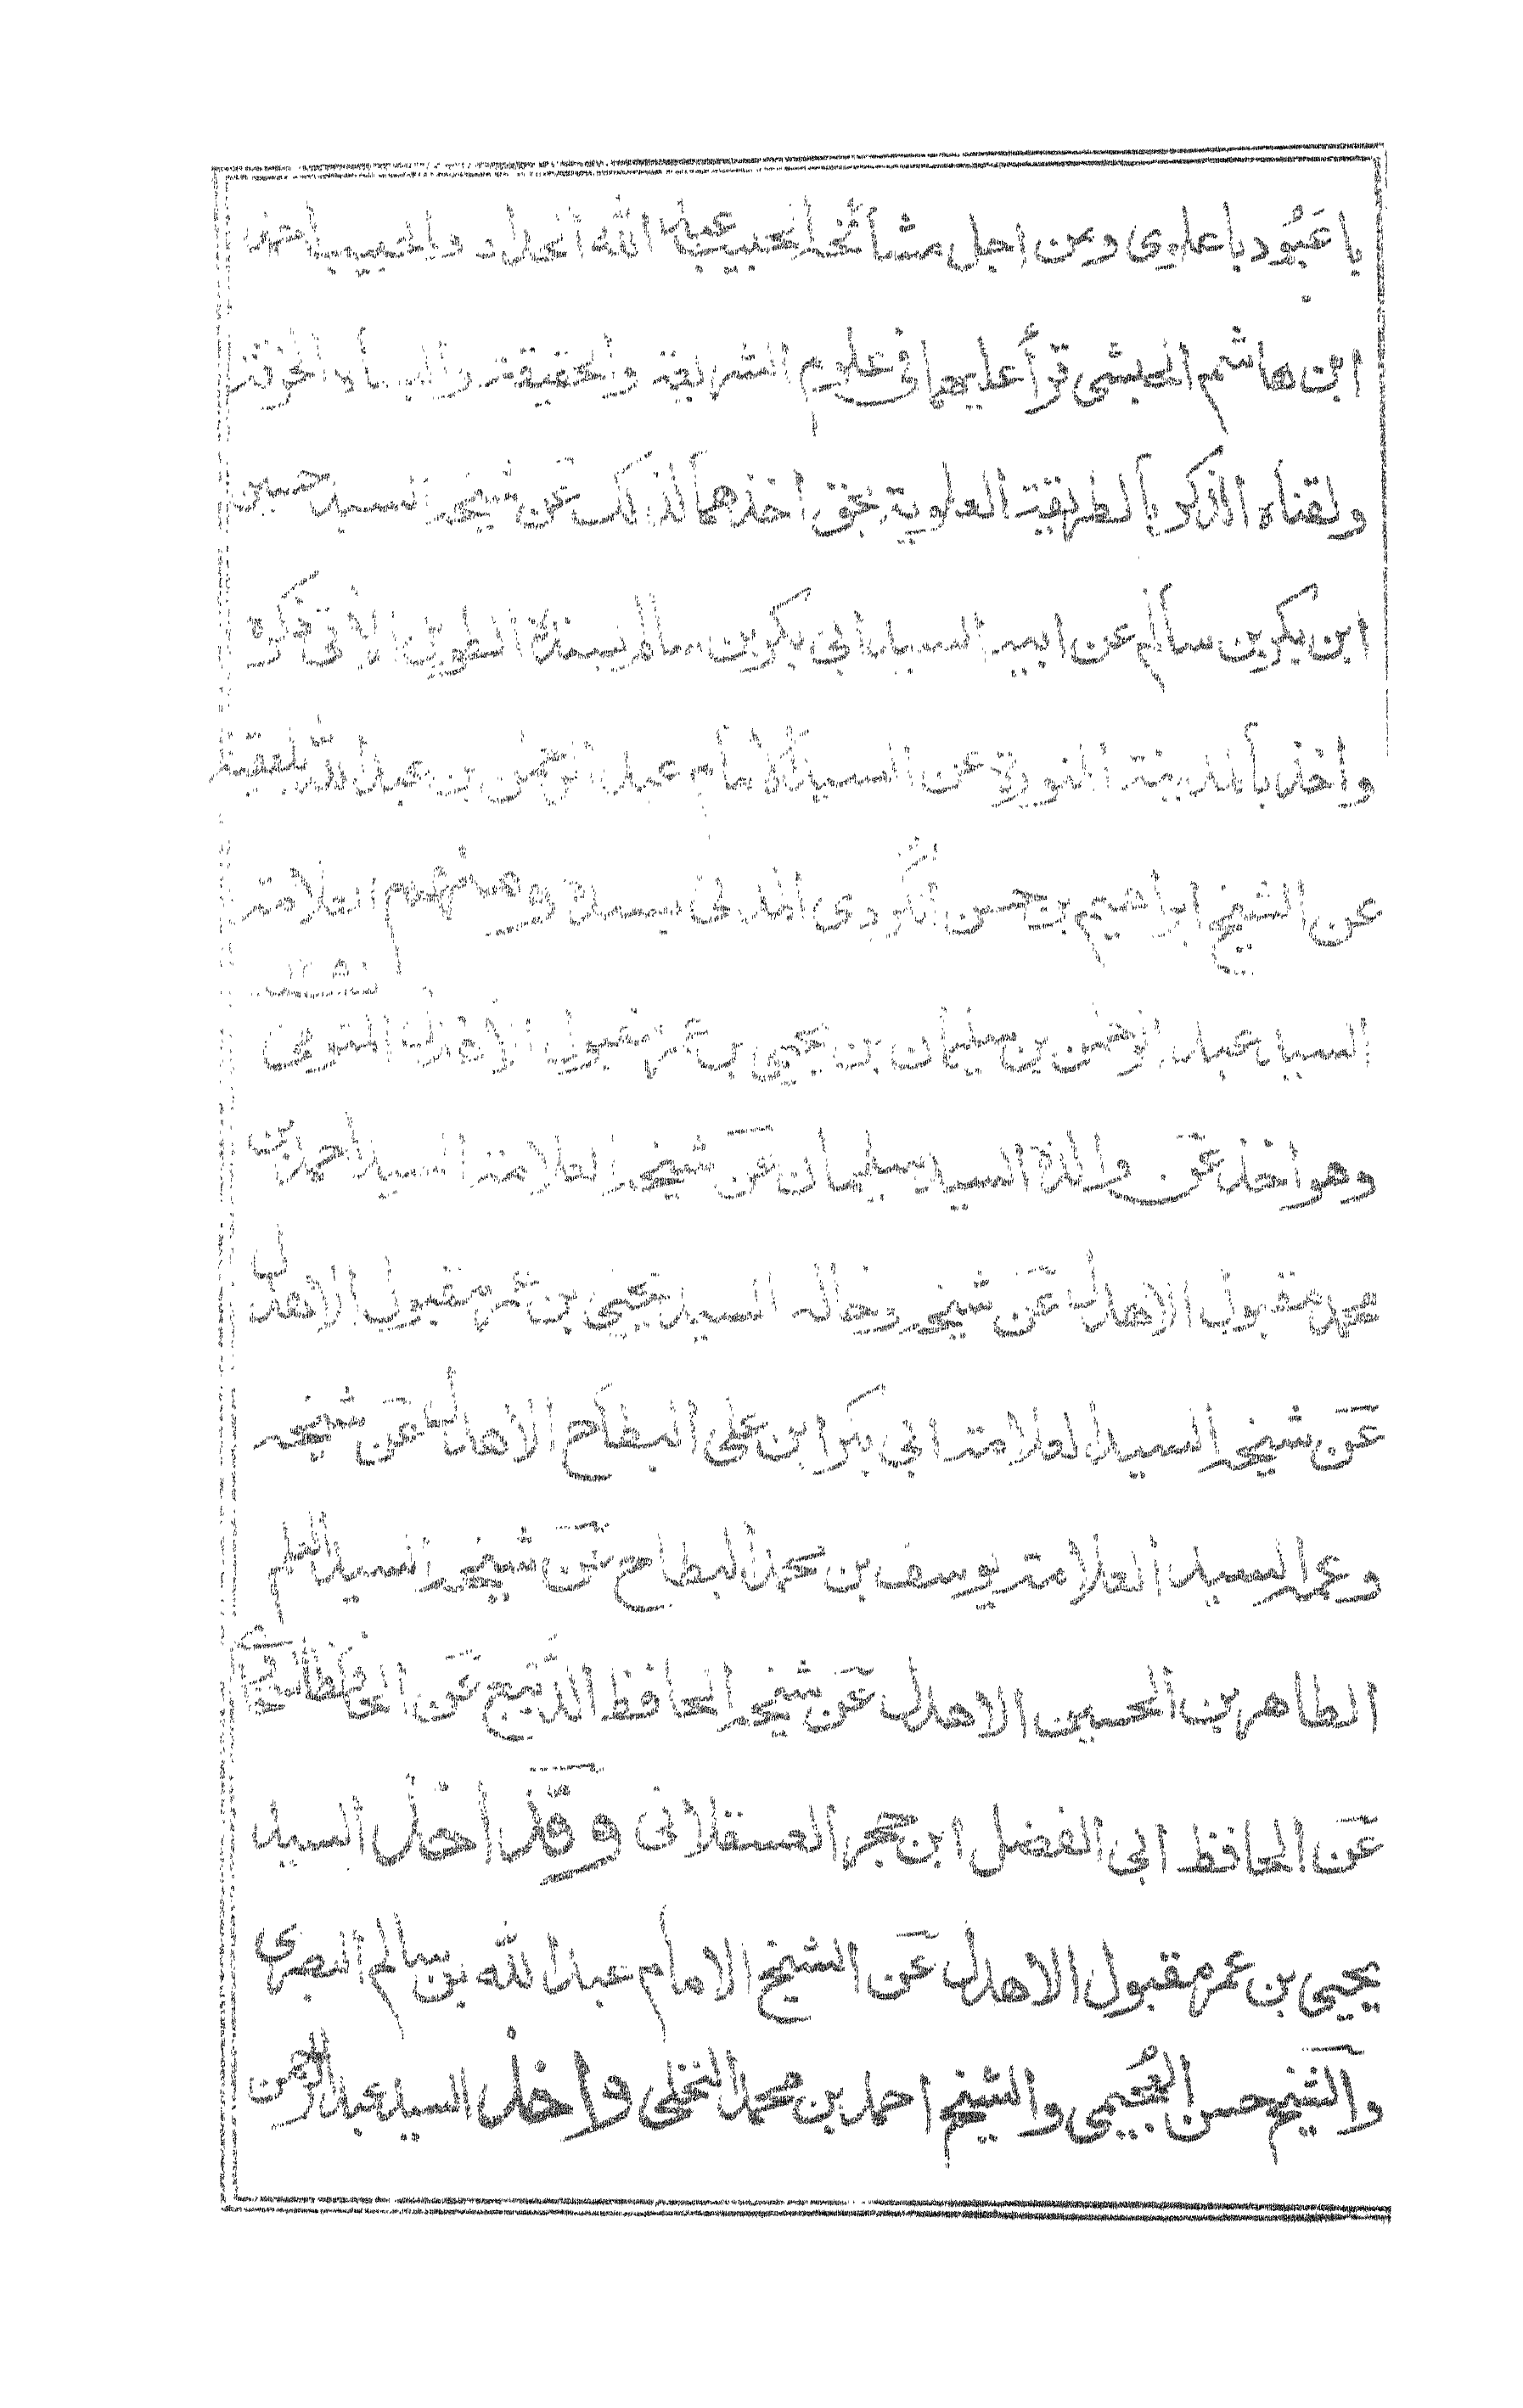 باعَبُود باعلوي ومن اجل مشائخه الحبيب عبد الله الحداد والحبيب احمد
ابن هاشم الحبشي قرأ عليهما في علوم الشريعة والحقيقة والبساه الخرقة
ولقناه الذكر بالطريقة العلوية بحق اخذهما لذلك عَن شيخه السيد حسين
ابن بكر بن سالم عن ابيه السيد ابي بكر بن سالم بسنده الطويل الاتي ذكره
واخذ بالمدينة المنورة عن السيد الامام عبد الرحمن بن عبد الله بلفقيه
عن الشيخ ابراهيم بن حسن الكُردي المدني بسنده ومنهم العلامة
السيد عبد الرحمن بن سليمان بن يحيى بن عمر مقبول الاهدل المتوفى
وهو اخذ عَن والده السيد سليمان عَن شيخه العلامة السيد احمد بن
محمد مقبول الاهدل عَن شيخه وخاله السيد يحيى بن عمر مقبول الاهدل
عَن شيخه السيد العلامة ابي بكر ابن علي البطاح الاهدل عَن شيخه
وعمه السيد العلامة يوسف بن محمد البطاح عَن شيخه السيد
الطاهر بن الحسين الاهدل عَن شيخه الحافظ الدَّيبع عَن الحافظ السخاوي
عَن الحافظ ابي الفضل ابن حجر العسقلاني وقد اخذ السيد
يحيى بن عمر مقبول الاهدل عَن الشيخ الامام عبد الله بن سالم البصري
والشيخ حسن العُجيمي والشيخ احمد بن محمد النخلي واخذ السيد عبد الرحمن